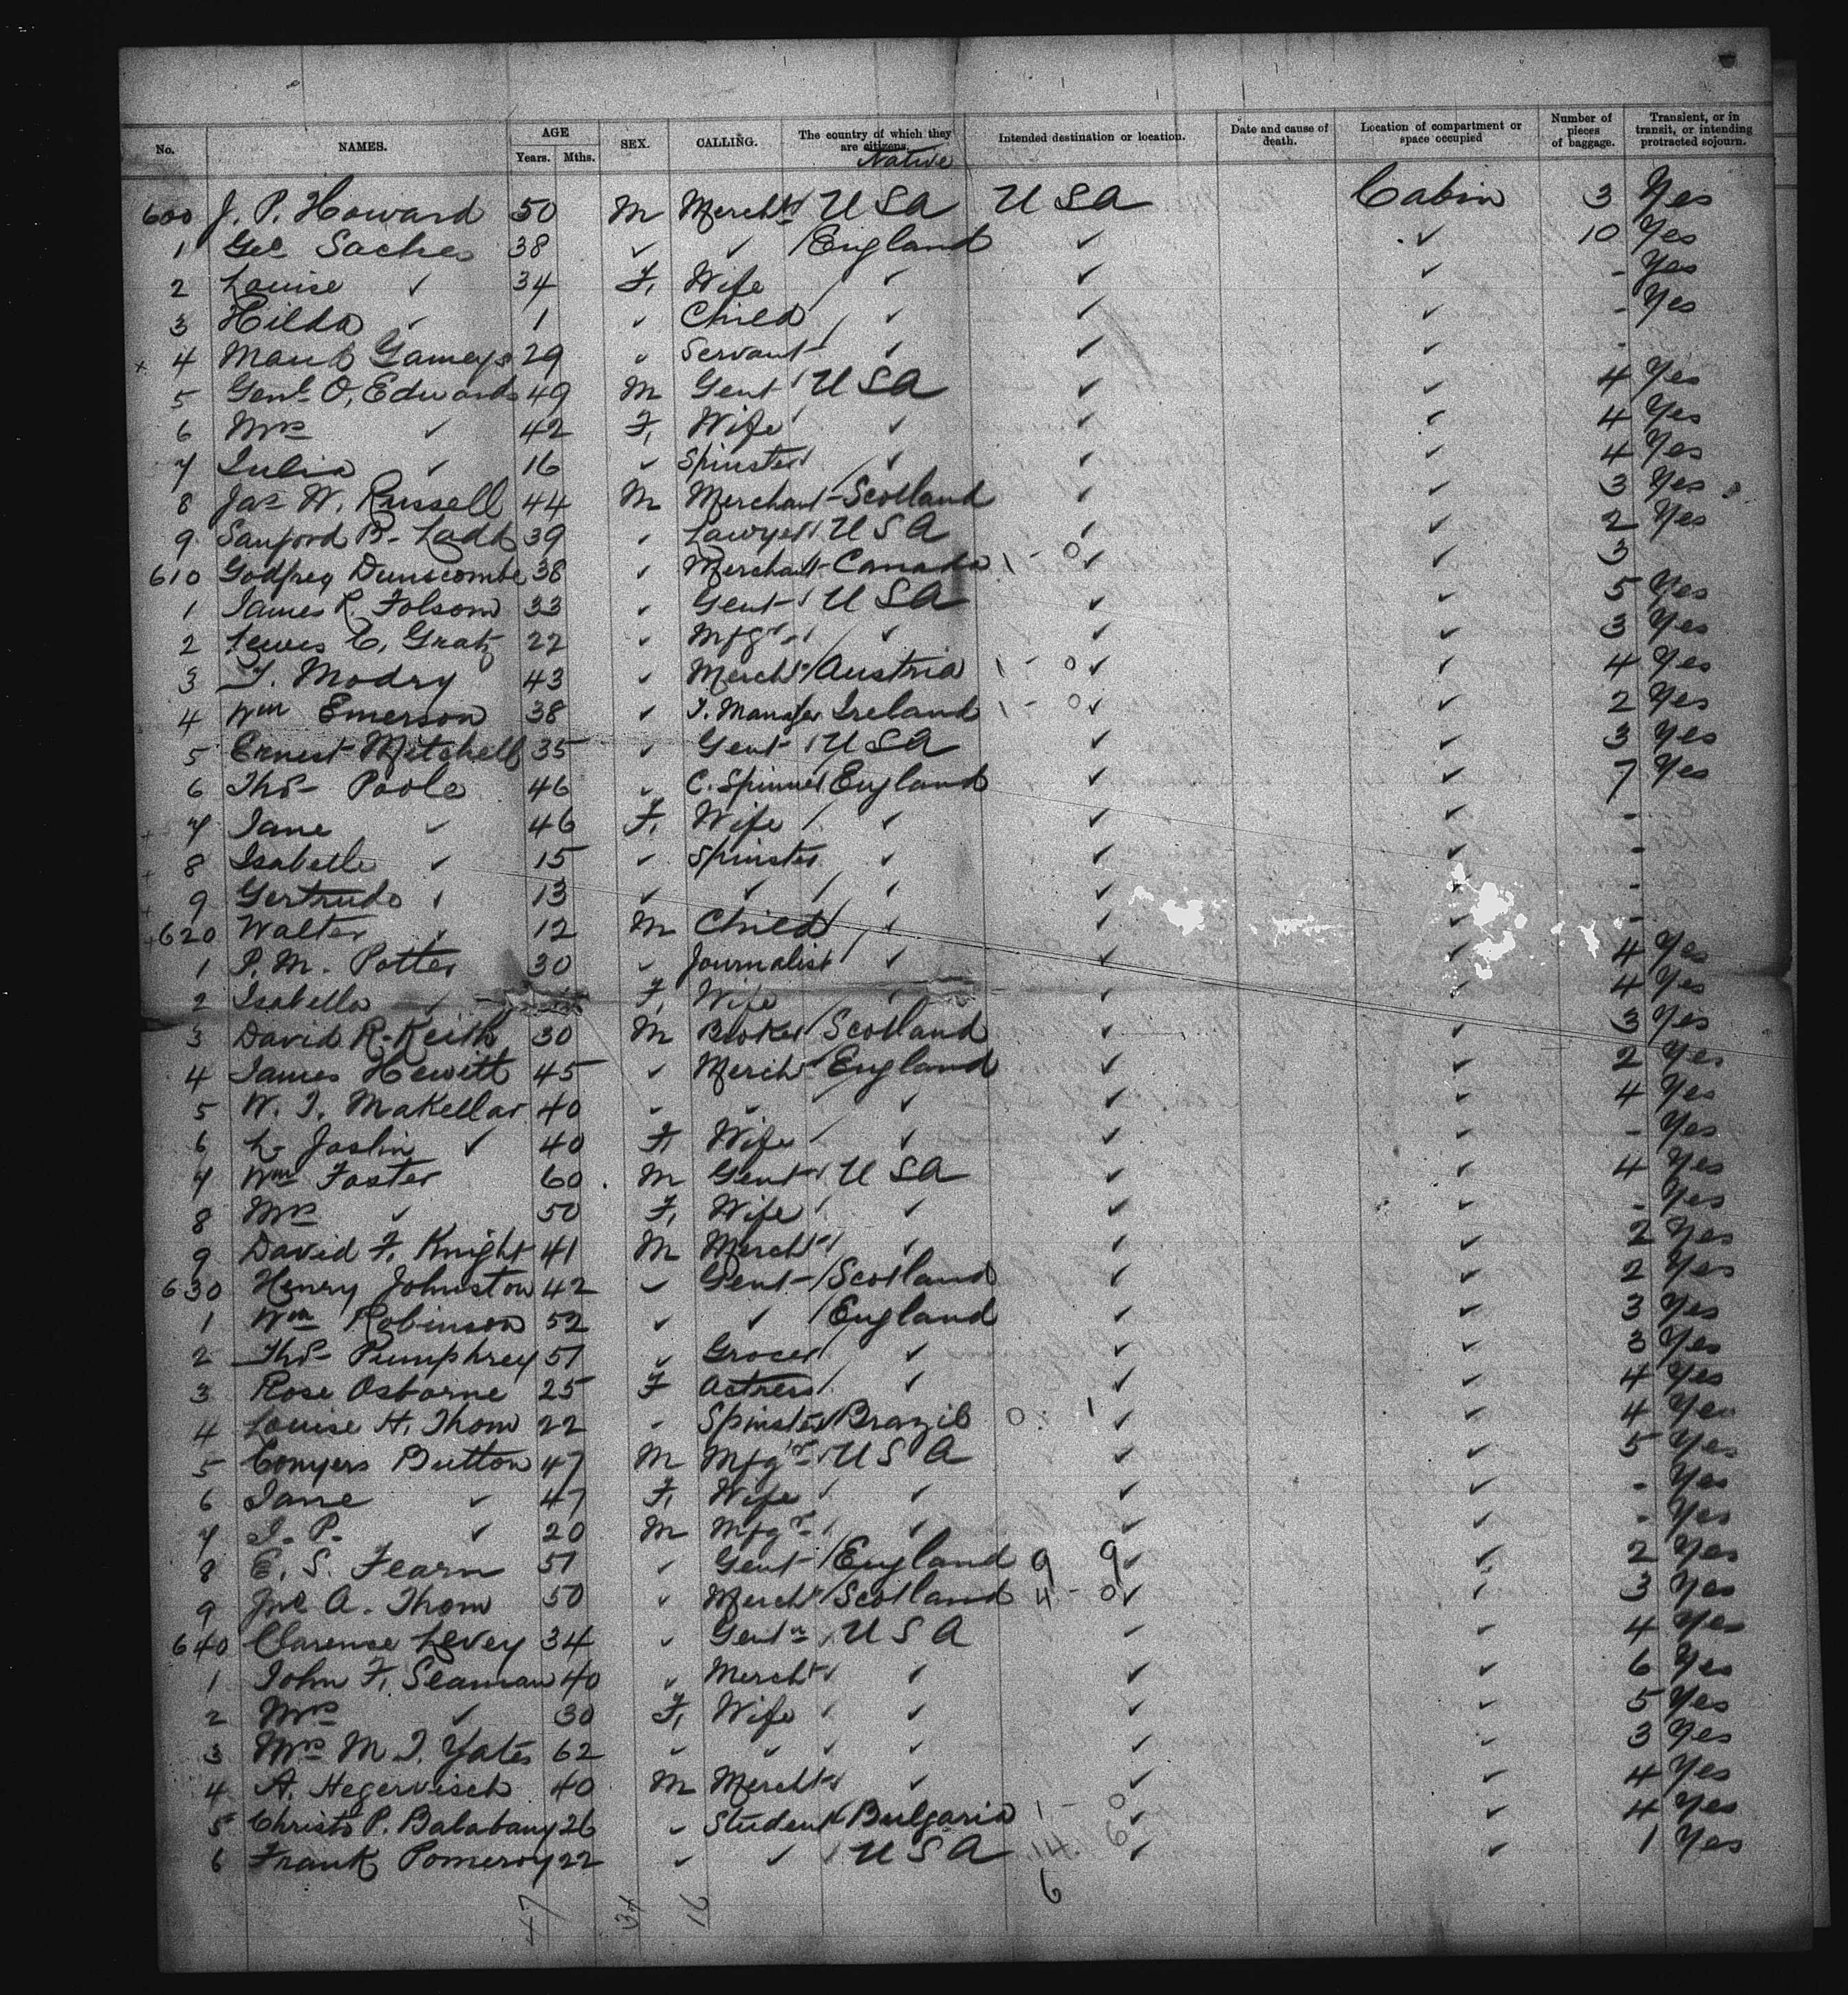 No. NAMES. AGE Years. Mths. SEX. CALLING. The country of which they are citizens. Native Intended destination or location. Date and cause of death. Location of compartment or space occupied Number of pieces of baggage. Transient, or in transit, or intending protracted sojourn.
600 J. P. Howard 50 M Mercht USA USA Cabin 3 Yes
1 Geo Saches 38 ✓ ✓ England ✓ ✓ 10 Yes
2 Louise ✓ 34 F, Wife ✓ ✓ ✓ - Yes
3 Hilda ✓ 1 ✓ Child ✓ ✓ ✓ - Yes
+ 4 Maud 29 ✓ Servant ✓ ✓ ✓ -
5 Genl O, Edwards 49 M Gent USA ✓ ✓ 4 Yes
6 Mrs ✓ 42 F, Wife ✓ ✓ ✓ 4 Yes
7 Julia ✓ 16 ✓ Spinster ✓ ✓ ✓ 4 Yes
8 Jas W. Russell 44 M Merchant Scotland ✓ ✓ 3 Yes
9 Sanford B. Ladd 39 ✓ Lawyer USA ✓ ✓ 2 Yes
610 Godfrey Dunscombe 38 ✓ Merchant Canada 1 - 0 ✓ ✓ 3
1 James R. Folsom 33 ✓ Gent USA ✓ ✓ 5 Yes
2 Lewis C. Gratz 22 ✓ Mfgr ✓ ✓ ✓ 3 Yes
3 F. Modry 43 ✓ Mercht Austria 1 - 0 ✓ ✓ 4 Yes
4 Wm Emerson 38 ✓ T. Manager Ireland 1 - 0 ✓ ✓ 2 Yes
5 Ernest Mitchell 35 ✓ Gent USA ✓ ✓ 3 Yes
6 Thos Poole 46 ✓ C. Spinner England ✓ ✓ 7 Yes
+ 7 Jane ✓ 46 F, Wife ✓ ✓ ✓ -
+ 8 Isabelle ✓ 15 ✓ Spinster ✓ ✓ ✓ -
+ 9 Gertrude ✓ 13 ✓ ✓ ✓ ✓ ✓ -
+ 620 Walter ✓ 12 M Child ✓ ✓ ✓ -
1 P. M. Potter 30 ✓ Journalist ✓ ✓ ✓ 4 Yes
2 Isabella ✓ F, Wife ✓ ✓ ✓ 4 Yes
3 David R. Keith 30 M Broker Scotland ✓ ✓ 3 Yes
4 James Hewitt 45 ✓ Mercht England ✓ ✓ 2 Yes
5 W. J. Makellar 40 ✓ ✓ ✓ ✓ ✓ 4 Yes
6 L. Joslin ✓ 40 F, Wife ✓ ✓ ✓ - Yes
7 Wm Foster 60 M Gent USA ✓ ✓ 4 Yes
8 Mrs ✓ 50 F, Wife ✓ ✓ ✓ - Yes
9 David F. Knight 41 M Mercht ✓ ✓ ✓ 2 Yes
630 Henry Johnston 42 ✓ Gent Scotland ✓ ✓ 2 Yes
1 Wm Robinson 52 ✓ ✓ England ✓ ✓ 3 Yes
2 Thos Pumphrey 51 ✓ Grocer ✓ ✓ ✓ 3 Yes
3 Rose Osborne 25 F Actress ✓ ✓ ✓ 4 Yes
4 Louise H. Thom 22 ✓ Spinster Brazil 0 : 1 ✓ ✓ 4 Yes
5 Conyers Button 47 M Mfgr USA ✓ ✓ 5 Yes
6 Jane ✓ 47 F, Wife ✓ ✓ ✓ - Yes
7 J. P. ✓ 20 M Mfgr ✓ ✓ ✓ - Yes
8 E. S. Fearn 51 ✓ Gent England 9 9 ✓ ✓ 2 Yes
9 Jno A. Thom 50 ✓ Mercht Scotland 4 - 0 ✓ ✓ 3 Yes
640 Clarence Levey 34 ✓ Gentn USA ✓ ✓ 4 Yes
1 John F. Seaman 40 ✓ Mercht ✓ ✓ ✓ 6 Yes
2 Mrs ✓ 30 F, Wife ✓ ✓ ✓ 5 Yes
3 Mrs M. J. Yates 62 ✓ ✓ ✓ ✓ ✓ 3 Yes
4 A. Hegervisch 40 M Mercht ✓ ✓ ✓ 4 Yes
5 Christo P. Balabany 26 ✓ Student Bulgaria 1 - 0 ✓ ✓ 4 Yes
6 Frank Pomeroy 22 ✓ ✓ USA ✓ ✓ 1 Yes
47 34 16 6